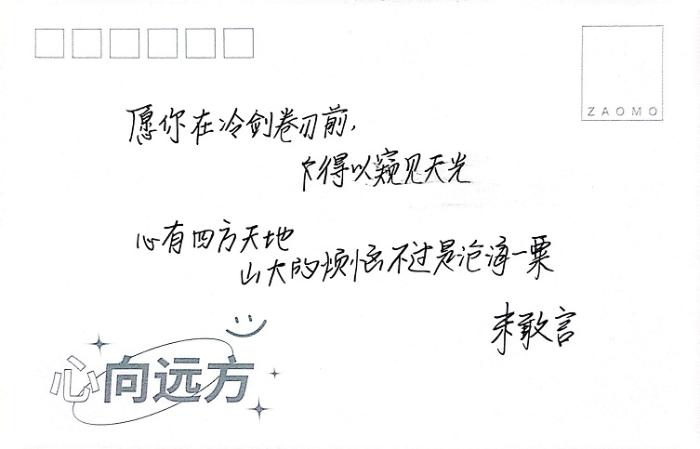 ZAOMO
愿你在冷剑卷刃前,
得以窥见天光
心有四方天地
山大的烦恼不过是沧海一粟
朱敢言
心向远方